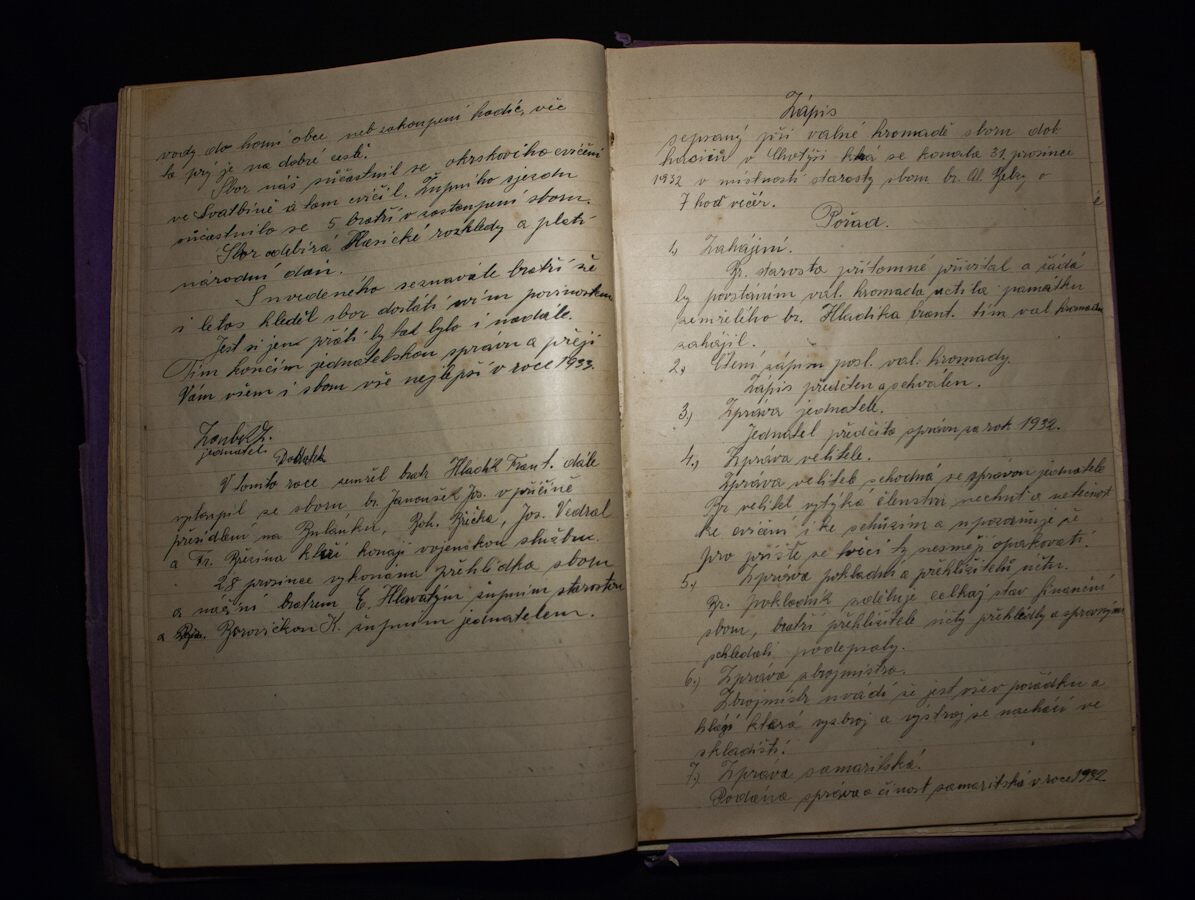 vody do horní obce neb zakoupení hadic, věc
ta prý je na dobré cestě.
Sbor náš súčastnil se okrskového cvičení
ve Svatbíně a tam cvičil. Župního sjezdu
súčastnilo se 5 bratrů v zastoupení sboru.
Sbor odebírá Hasičské rozhledy a platí
národní daň.
Z uvedeného seznaváte bratří že
i letos hleděl sbor dostáti svým povinnostem
Jest si jen přáti by tak bylo i nadále.
Tím končím jednatelskou zprávu a přeji
Vám všem i sboru vše nejlepší v roce 1933.
jednatel.
Dodatek
V tomto roce zemřel bratr Hladík Frant. dále
vystoupil ze sboru br. Janoušek Jos. v příčině
přesídlení na Bulanku, Boh. Břička, Jos. Vedral
a Fr. Březina kteří konají vojenskou službu.
28 prosince vykonána přehlídka sboru
a náčiní bratrem E. Hlavatým župním starostou
a Borovičkou K. župním jednatelem.
Zápis
sepsaný při valné hromadě sboru dob
hasičů v Chotýši která se konala 31. prosince
1932 v místnosti starosty sboru br. Al. o
7 hod večer.
Pořad.
1, Zahájení.
Br. starosta přítomné přivítal a žádá
by povstáním val. hromada uctila památku
zemřelého br. Hladíka Frant. tím val hromadu
zahájil.
2, Čtení zápisu posl. val. hromady.
Zápis předčten a schválen.
3.) Zpráva jednatele.
Jednatel předčítá zprávu za rok 1932.
4., Zpráva velitele.
Zpráva velitele schodná se zprávou jednatele
Br velitel vytýká členstvu nechuť a netečnost
ke cvičení i ke schůzím a upozorňuje že
pro příště se věci ty nesmějí opakovati.
5., Zpráva pokladní a přehlížitelů účtu.
Br. pokladník sděluje celkaj stav finanční
sboru, bratři přehlížitelé účty přehlédly a správnými
shledali podepsaly.
6.) Zpráva zbrojmistra.
Zbrojmistr uvádí že jest vše v pořádku a
hlásí která výzbroj a výstroj se nachází ve
skladišti.
7.) Zpráva samaritská.
Podána zpráva o činost samaritské v roce 1932